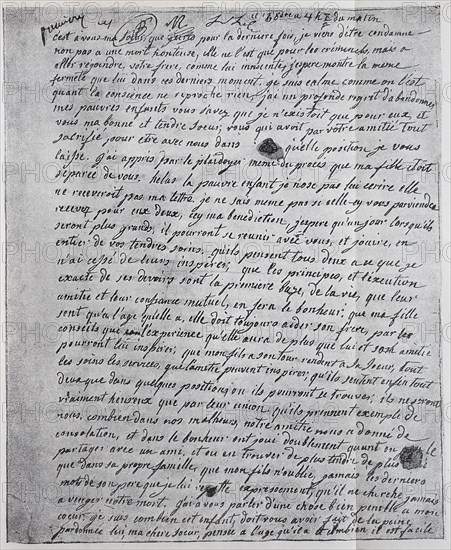 ce 16 8bre a 4 h ½ du matin
c'est a vous ma Soeur, que j'ecris pour la derniere fois, je viens d'etre condamnée
non pas a une mort honteuse, elle ne l'est que pour les criminels, mais a
aller rejoindre votre frere, comme lui innocente, j'espere montrer la meme
fermeté que lui dans ces derniers moment. je suis calme comme on l'est
quant la conscience ne reproche rien, j'ai un profond regret d'abandonner
mes pauvres enfants vous savez que je n'existoit que pour eux, et
vous ma bonne et tendre Soeur, vous qui avoit par votre amitié tout
sacrifié pour etre avec nous dans quelle position je vous
laisse. j'ai appris par le plaidoyer meme du procès que ma fille etoit
séparée de vous, helas la pauvre enfant je n'ose pas lui ecrire elle
ne receveroit pas ma lettre. je ne sais meme pas si celle-cy vous parviendra
recevez pour eux deux, icy ma benediction, j'espere qu'un jour lorsqu'ils
seront plus grands, il pourront se reunir avec vous, et jouire, en
entier de vos tendres soins. qu'ils pensent tous deux a ce que je
n'ai cessé de leurs inspirer, que les principes, et l'execution
exacte de ses devoirs sont la premiere baze, de la vie, que leur
amitié et leur confiance mutuel, en fera le bonheur, que ma fille
sent qu'a l'age qu'elle a, elle doit toujours aider son frere, par les
conseils que l'experience qu'elle aura de plus que lui et son amitié
pourront lui inspirer, que mon fils a son tour rendent a sa Soeur, tout
les soins les services, que l'amitié peuvent inspirer, qu'ils sentent enfin tout
deux que dans quelques positions ou ils pourront se trouver, ils ne seront
vraiment heureux que par leur union. qu'ils prennent exemple de
nous, combien dans nos malheurs, notre amitié nous a donné de
consolation, et dans le bonheur on t joui doublement quant on le
partager avec un ami, et ou en trouver de plus tendre de plus
que dans sa propre famille, que mon fils n'oublie jamais les derniers
mots de son pere que je lui repette expressement, qu'il ne cherche jamais
a venger notre mort. j'ai a vous parler d'une chose bien penible a mon
coeur, je sais combien cet enfant, doit vous avoir fait de la peine,
pardonnez lui, ma chere Soeur, pensée a l'age qu'il a et combien il est facile